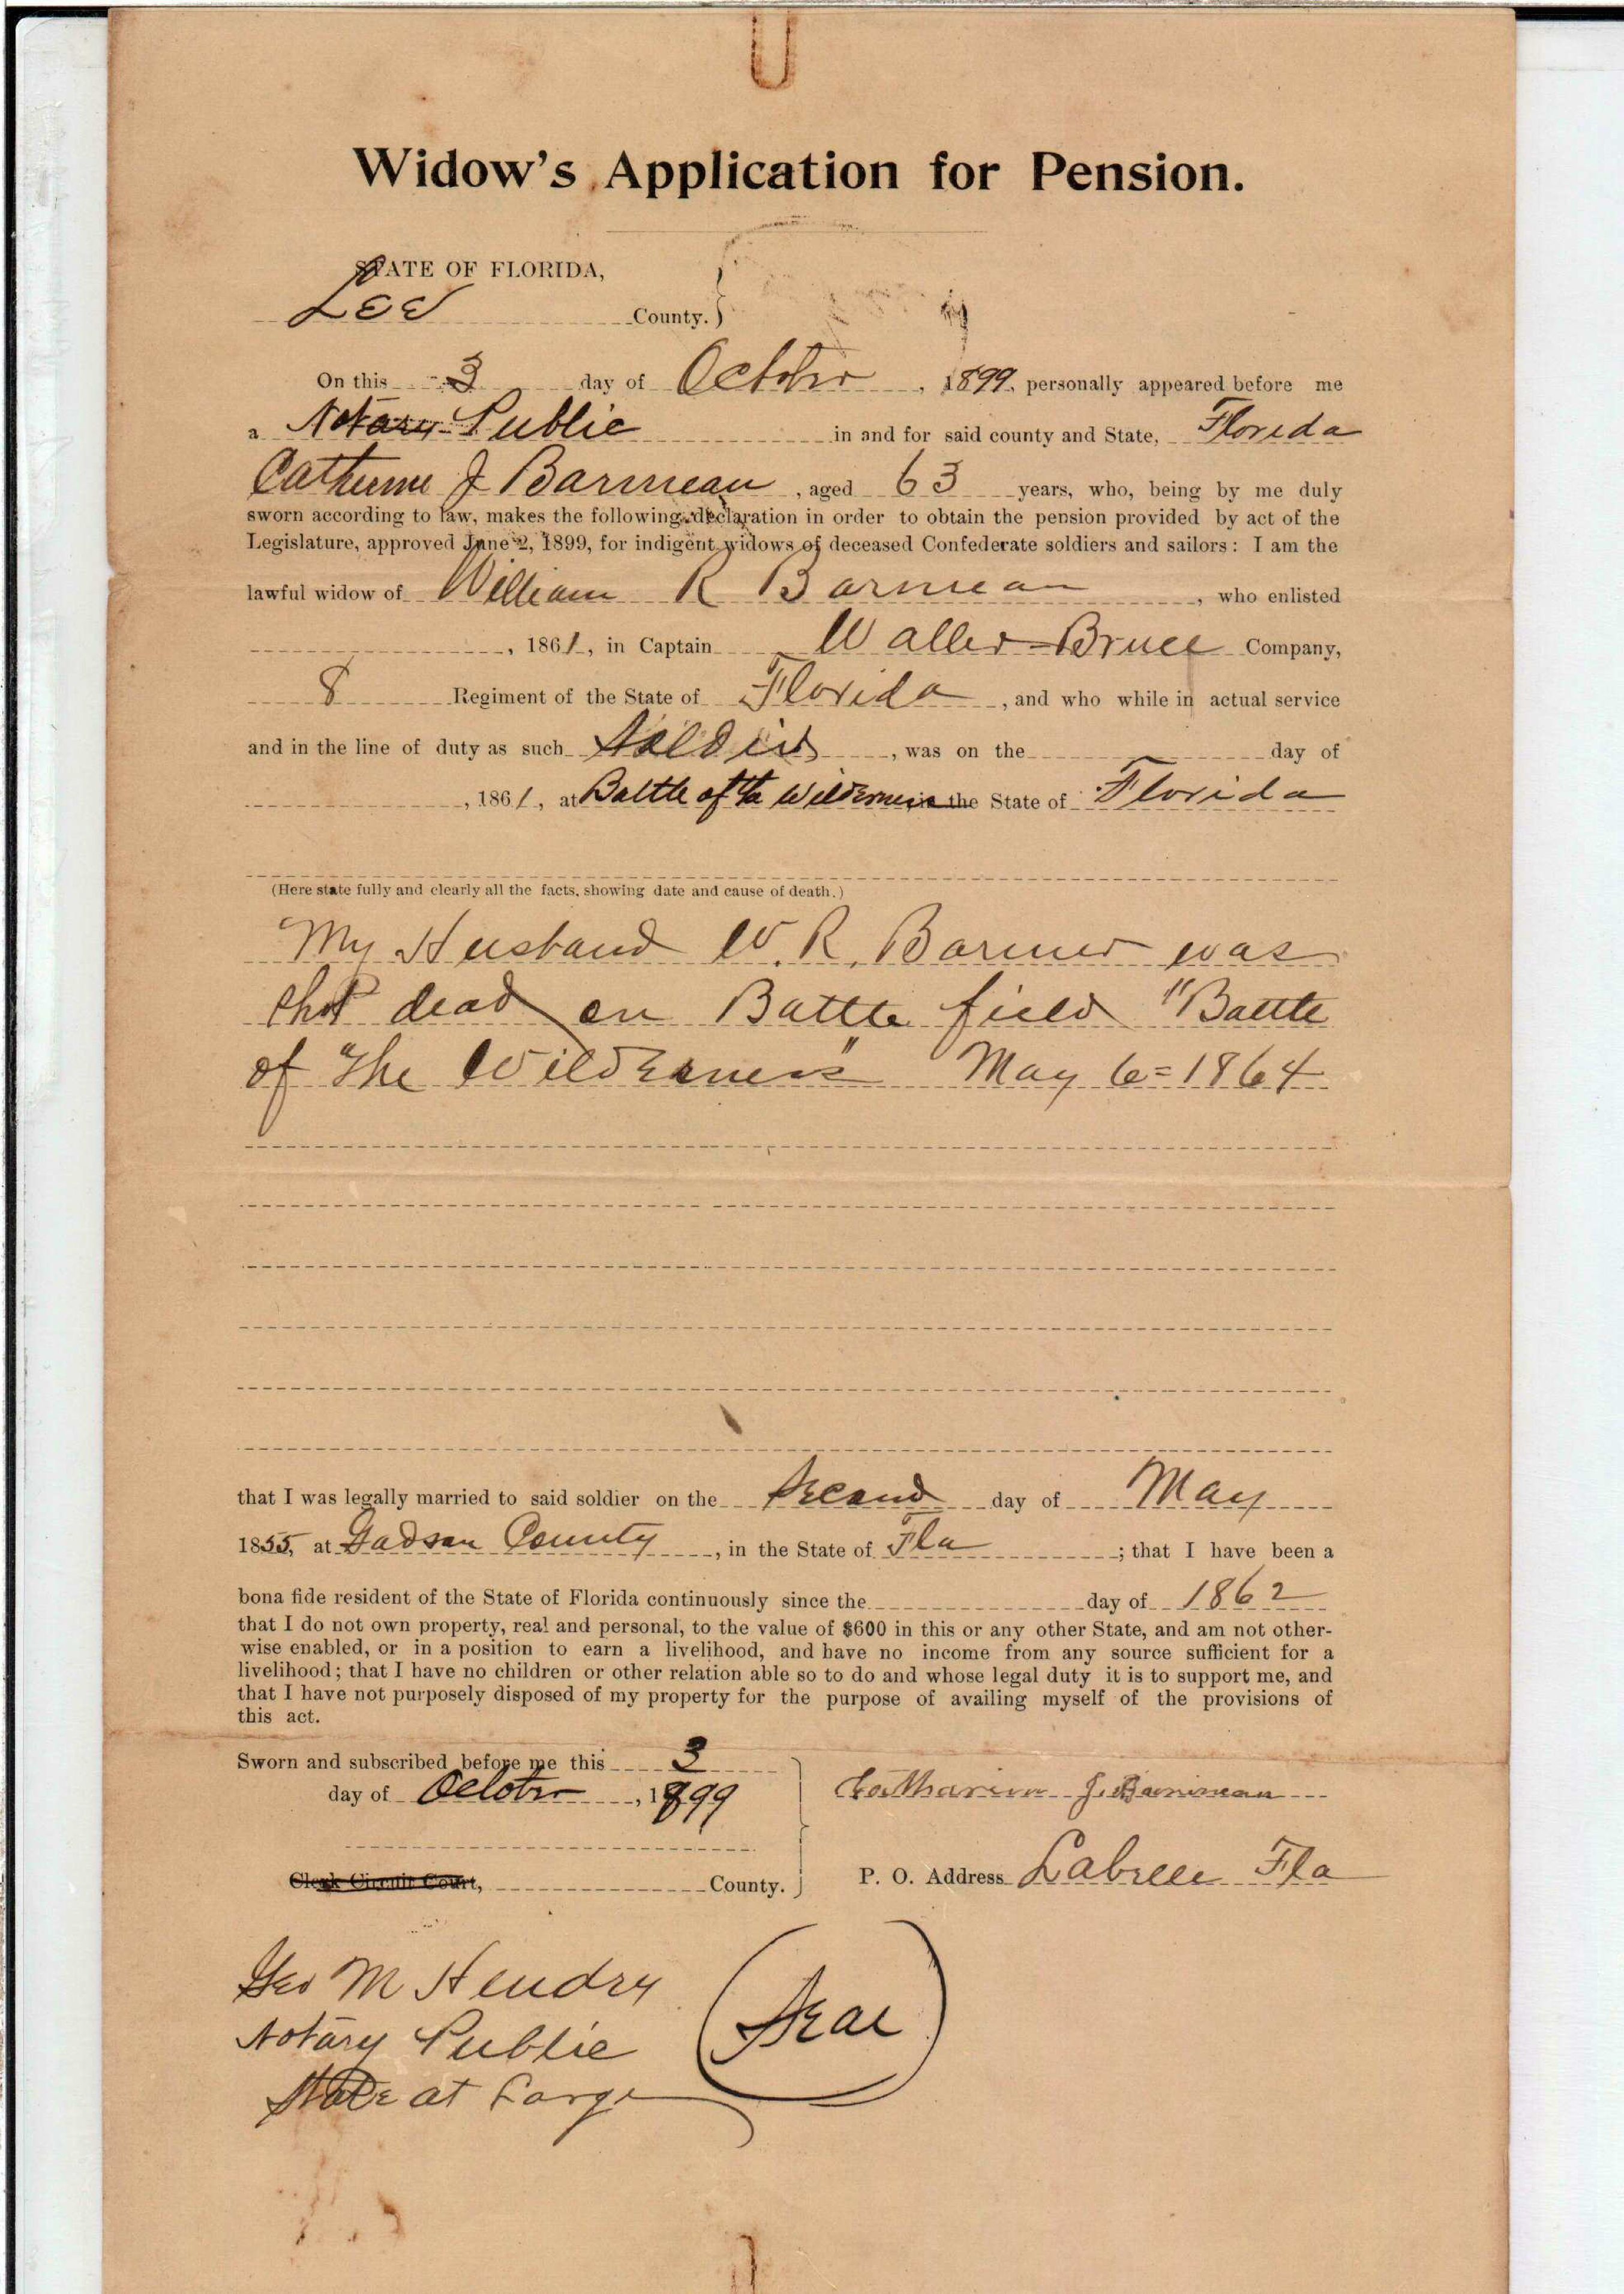 Widow's Application for Pension.
STATE OF FLORIDA,
Lee County.
On this 3 day of October, 1899, personally appeared before me
a Notary Public in and for said county and State, Florida
Catherine J Barineau, aged 63 years, who, being by me duly
sworn according to law, makes the following declaration in order to obtain the pension provided by act of the
Legislature, approved June 2, 1899, for indigent widows of deceased Confederate soldiers and sailors: I am the
lawful widow of William R Barineau, who enlisted
, 1861, in Captain Waller Bruce Company,
8 Regiment of the State of Florida, and who while in actual service
and in the line of duty as such Soldier, was on the day of
, 1861, at Battle of the Wilderness in the State of Florida
(Here state fully and clearly all the facts, showing date and cause of death.)
My Husband W. R. was
shot dead on Battle field "Battle
of the Wilderness" May 6=1864
that I was legally married to said soldier on the Second day of May
1855, at Gadsen County, in the State of Fla; that I have been a
bona fide resident of the State of Florida continuously since the day of 1862
that I do not own property, real and personal, to the value of $600 in this or any other State, and am not other-
wise enabled, or in a position to earn a livelihood, and have no income from any source sufficient for a
livelihood; that I have no children or other relation able so to do and whose legal duty it is to support me, and
that I have not purposely disposed of my property for the purpose of availing myself of the provisions of
this act.
Sworn and subscribed before me this 3
day of October, 1899
Catharine J. Barineau
Clerk Circuit Court, County.
P. O. Address Labelle Fla
Geo M Hendry
Notary Public
State at Large
Seal